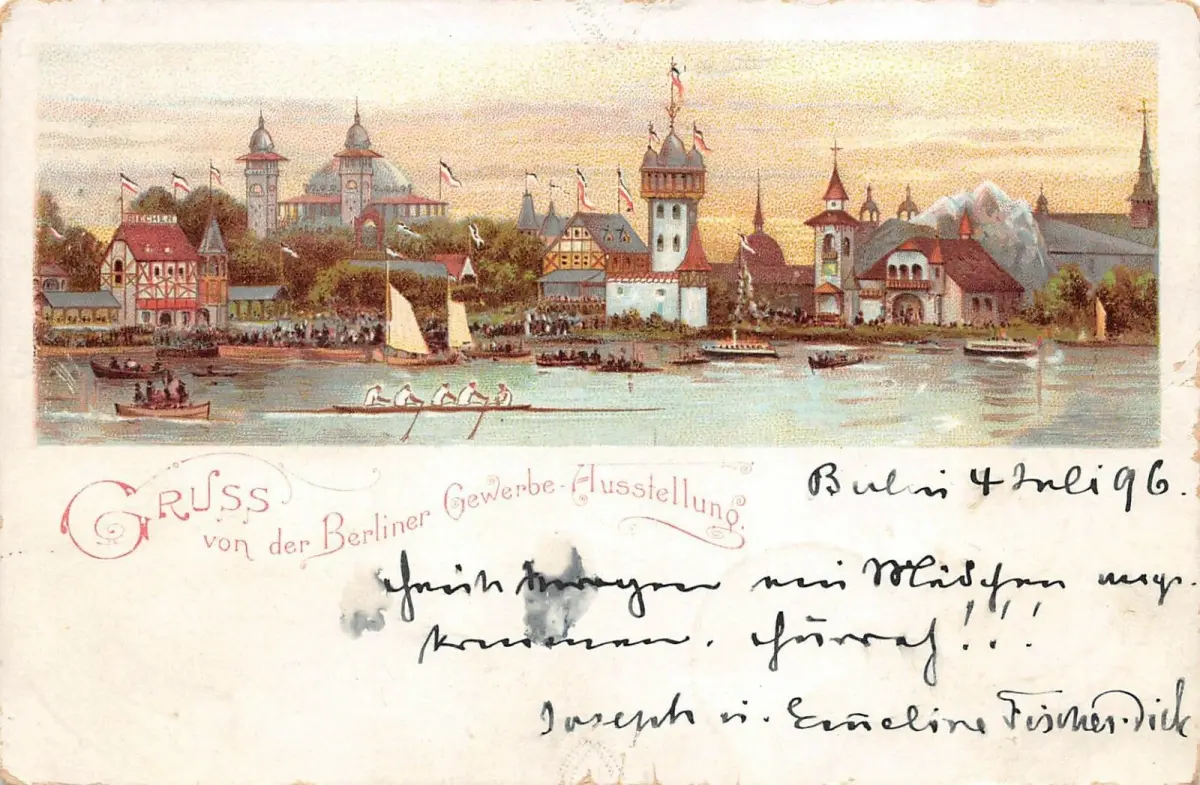 SIECHEN
GRUSS
von der Berliner Gewerbe-Ausstellung.
Berlin 4 Juli 96.
Heute morgen ein Mädchen
kommen. Hurrah!!!
Joseph u. Emeline Fischer-Dick